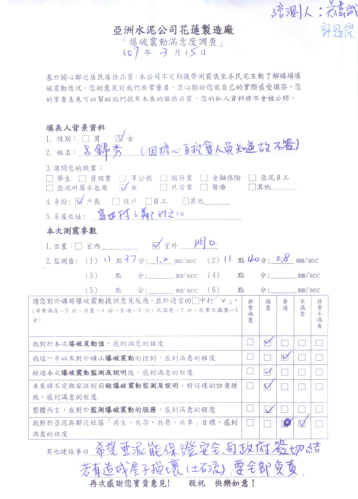 亞洲水泥公司花蓮製造廠
「爆破震動滿意度調查」
107年 3月15日
基於關心鄰近居民居住品質,本公司不定期攜帶測震儀至各民宅主動了解礦場爆
破震動情況,您的意見對我們非常重要,衷心期盼您就自己的實際感受填答。您
的寶貴意見可以幫助我們提昇未來的服務品質,您的私人資料將不會被公開。
填表人背景資料
1. 性別: □ 男 ☑女
2. 姓名: (因擔心自救會人員知道故不簽)
3. 請問您的職業:
□ 學生 □ 資訊業 □ 軍公教 □ 服務業 □ 金融保險 □ 亞泥員工
□ 亞泥所屬承包商 □ 農 □ 民宿業 □ 醫療 □其他
4. 身份: ☑戶長 □住戶 □員工 □其他
5. 居住地址:
本次測震參數
1. 位置: □ 室內 ☑室外 門口
2. 監測值: (1) 11 點 37分; 1.2 mm/sec (2) 11 點 40分; 0.8 mm/sec
(3) 點 分; mm/sec (4) 點 分; mm/sec
(5) 點 分; mm/sec (6) 點 分; mm/sec
請您對於礦場爆破震動提供意見反應,並於適當的□中打「v」。
非常滿意 滿意 普通 不滿意 非常不滿意
我對於本次爆破震動值,感到滿意的程度
我這一年以來對於礦山爆破震動的控制,感到滿意的程度
經過本次爆破震動監測及說明後,感到滿意的程度
未來將不定期安排到府做爆破震動監測及說明,對這樣的敦親措
施,感到滿意的程度
整體而言,我對於監測爆破震動的服務,感到滿意的程度
我對於亞泥與鄰近社區「共生、共存、共榮、共享」目標,感到
滿意的程度
其他建議事項 希望亞泥能保證安全,向政府簽切結
若有造成房子損壞(土石流)要全部負責.
再次感謝您寶貴意見! 敬祝 快樂如意!